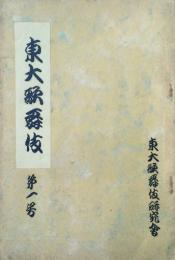 東大歌舞伎
第一号
東大歌舞伎研究会